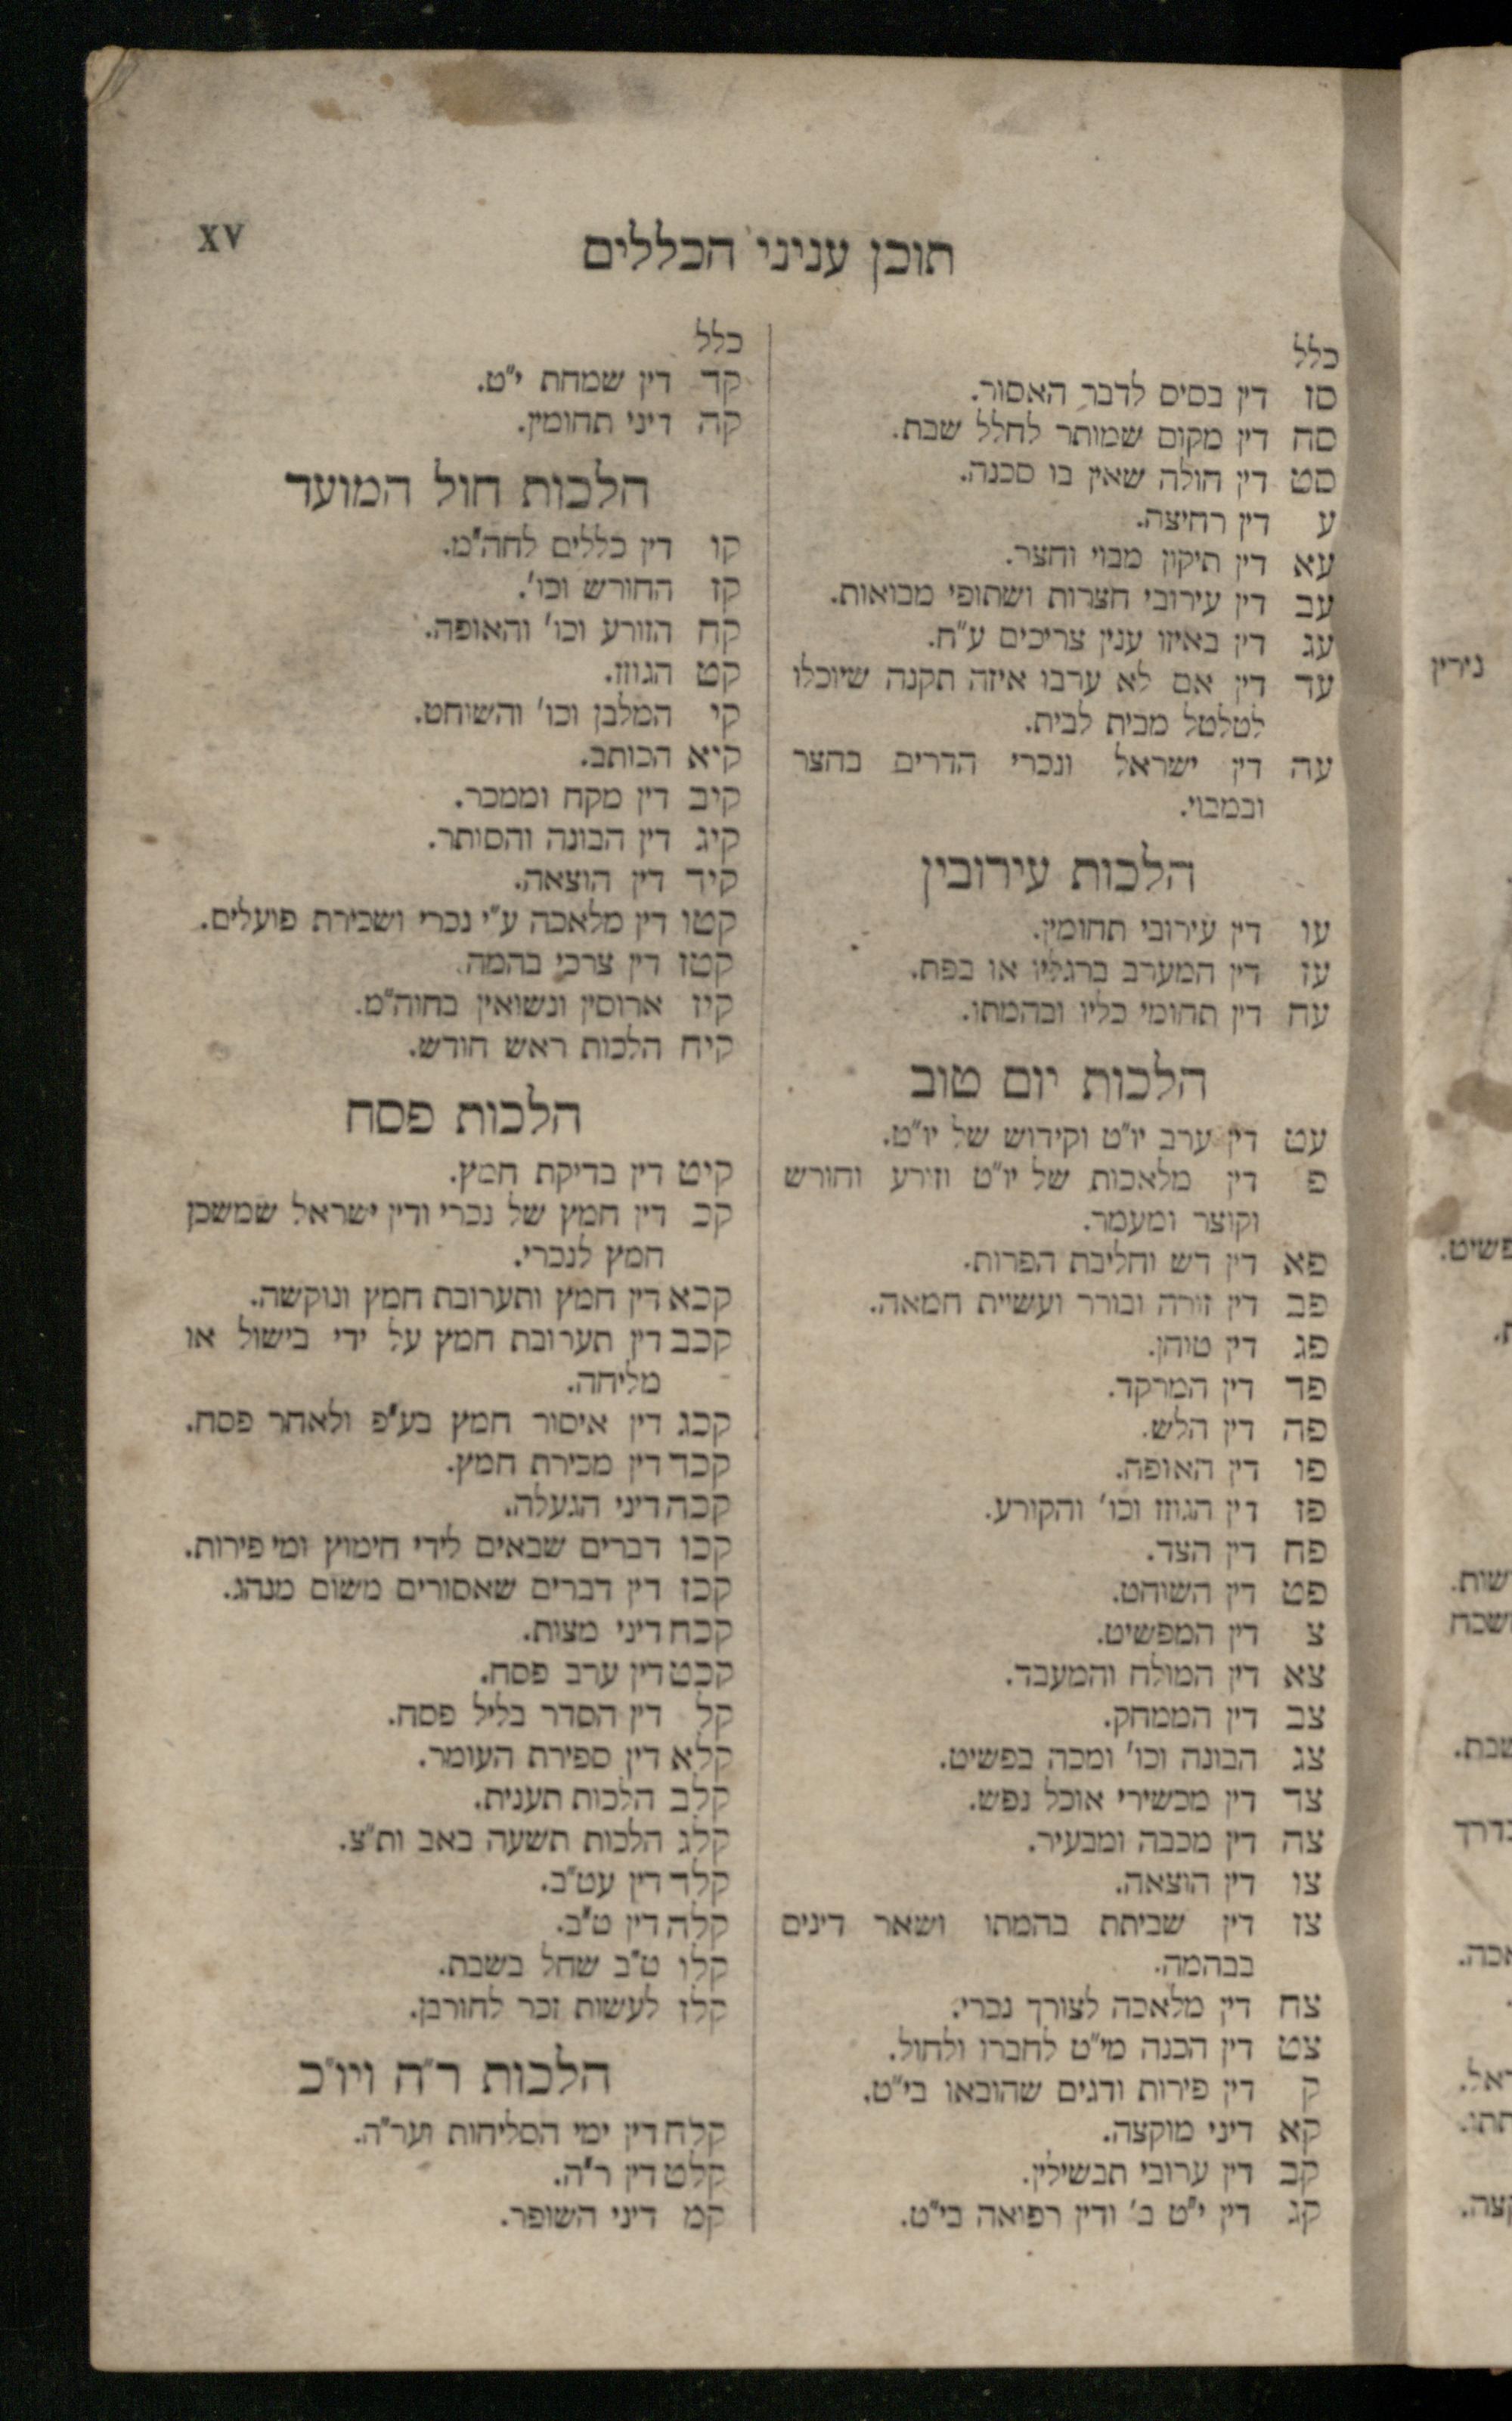 תוכן עניני הכללים
XV
כלל
סז דין בסיס לדבר האסור.
סח דין מקום שמותר לחלל שבת.
סט דין חולה שאין בו סכנה.
ע דין רחיצה.
עא דין תיקון מבוי וחצר.
עב דין עירובי חצרות ושתופי מבואות.
עג דין באיזו ענין צריכים ע"ח.
עד דין אם לא ערבו איזה תקנה שיוכלו
לטלטל מבית לבית.
עה דין ישראל ונכרי הדרים בחצר
ובמבוי.
הלכות עירובין
עו דין עירובי תחומין.
עז דין המערב ברגליו או בפת.
עח דין תחומי כליו ובהמתו.
הלכות יום טוב
עט דין ערב יו"ט וקידוש של יו"ט.
פ דין מלאכות של יו"ט וזורע וחורש
וקוצר ומעמר.
פא דין דש וחליבת הפרות.
פב דין זורה ובורר ועשיית חמאה.
פג דין טוחן.
פד דין המרקד.
פה דין הלש.
פו דין האופה.
פז דין הגוזז וכו' והקורע.
פח דין הצד.
פט דין השוחט.
צ דין המפשיט.
צא דין המולח והמעבד.
צב דין הממחק.
צג הבונה וכו' ומכה בפטיש.
צד דין מכשירי אוכל נפש.
צה דין מכבה ומבעיר.
צו דין הוצאה.
צז דין שביתת בהמתו ושאר דינים
בבהמה.
צח דין מלאכה לצורך נכרי.
צט דין הכנה מי"ט לחברו ולחול.
ק דין פירות ודגים שהובאו בי"ט.
קא דיני מוקצה.
קב דין ערובי תבשילין.
קג דין י"ט ב' ודין רפואה בי"ט.
כלל
קד דין שמחת י"ט.
קה דיני תחומין.
הלכות חול המועד
קו דין כללים לחה"מ.
קז החורש וכו'.
קח הזורע וכו' והאופה.
קט הגוזז.
קי המלבן וכו' והשוחט.
קיא הכותב.
קיב דין מקח וממכר.
קיג דין הבונה והסותר.
קיד דין הוצאה.
קטו דין מלאכה ע"י נכרי ושכירת פועלים.
קטז דין צרכי בהמה.
קיז ארוסין ונשואין בחוה"מ.
קיח הלכות ראש חודש.
הלכות פסח
קיט דין בדיקת חמץ.
קכ דין חמץ של נכרי ודין ישראל שמשכן
חמץ לנכרי.
קכא דין חמץ ותערובת חמץ ונוקשה.
קכב דין תערובת חמץ על ידי בישול או
מליחה.
קכג דין איסור חמץ בע"פ ולאחר פסח.
קכד דין מכירת חמץ.
קכה דיני הגעלה.
קכו דברים שבאים לידי חימוץ ומי פירות.
קכז דין דברים שאסורים משום מנהג.
קכח דיני מצות.
קכט דין ערב פסח.
קל דין הסדר בליל פסח.
קלא דין ספירת העומר.
קלב הלכות תענית.
קלג הלכות תשעה באב ות"צ.
קלד דין עט"ב.
קלה דין ט"ב.
קלו ט"ב שחל בשבת.
קלז לעשות זכר לחורבן.
הלכות ר"ה ויו"כ
קלח דין ימי הסליחות וער"ה.
קלט דין ר"ה.
קמ דיני השופר.